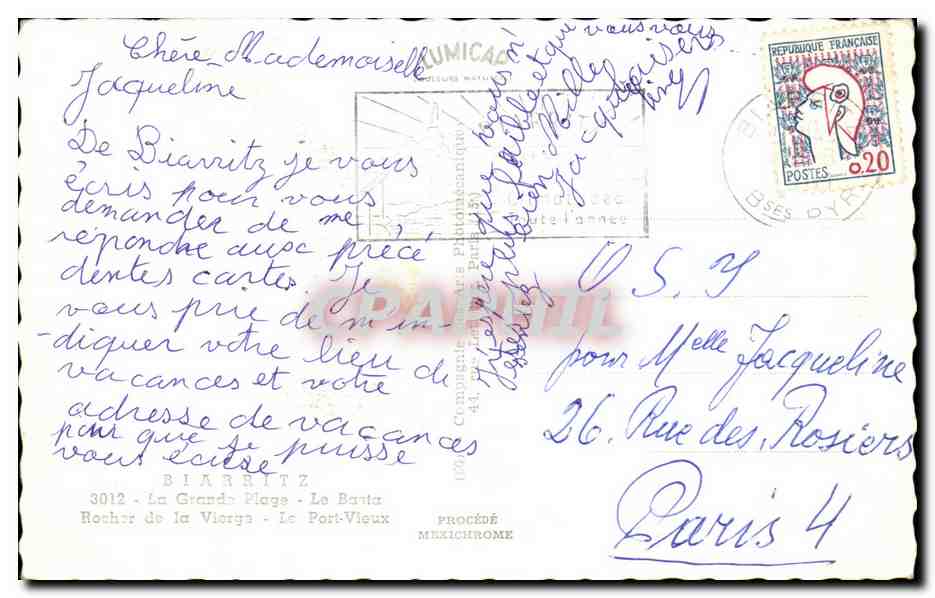 Chère Mademoiselle
Jaqueline
De Biarritz je vous
écris pour vous
demander de me
répondre aux précé
dentes cartes. Je
vous prie de m'in-
-diquer votre lieu de
vacances et votre
adresse de vacances
pour que je puisse
vous écrire
J'espère que vous n'
plus faible et que vous vous
sentez bien Milles
baisers
Jacqueline
LUMICAP
toute l'année
Compagnie des Arts Photomécaniques
44, rue Paris
BIARRITZ
3012 - La Grande Plage - Le Basta
Rocher de la Vierge - Le Port-Vieux
PROCÉDÉ
MEXICHROME
REPUBLIQUE FRANÇAISE
POSTES 0.20
BSES PYR
O. S. Y
pour Melle Jacqueline
26. Rue des. Rosiers
Paris 4
CPAPHIL